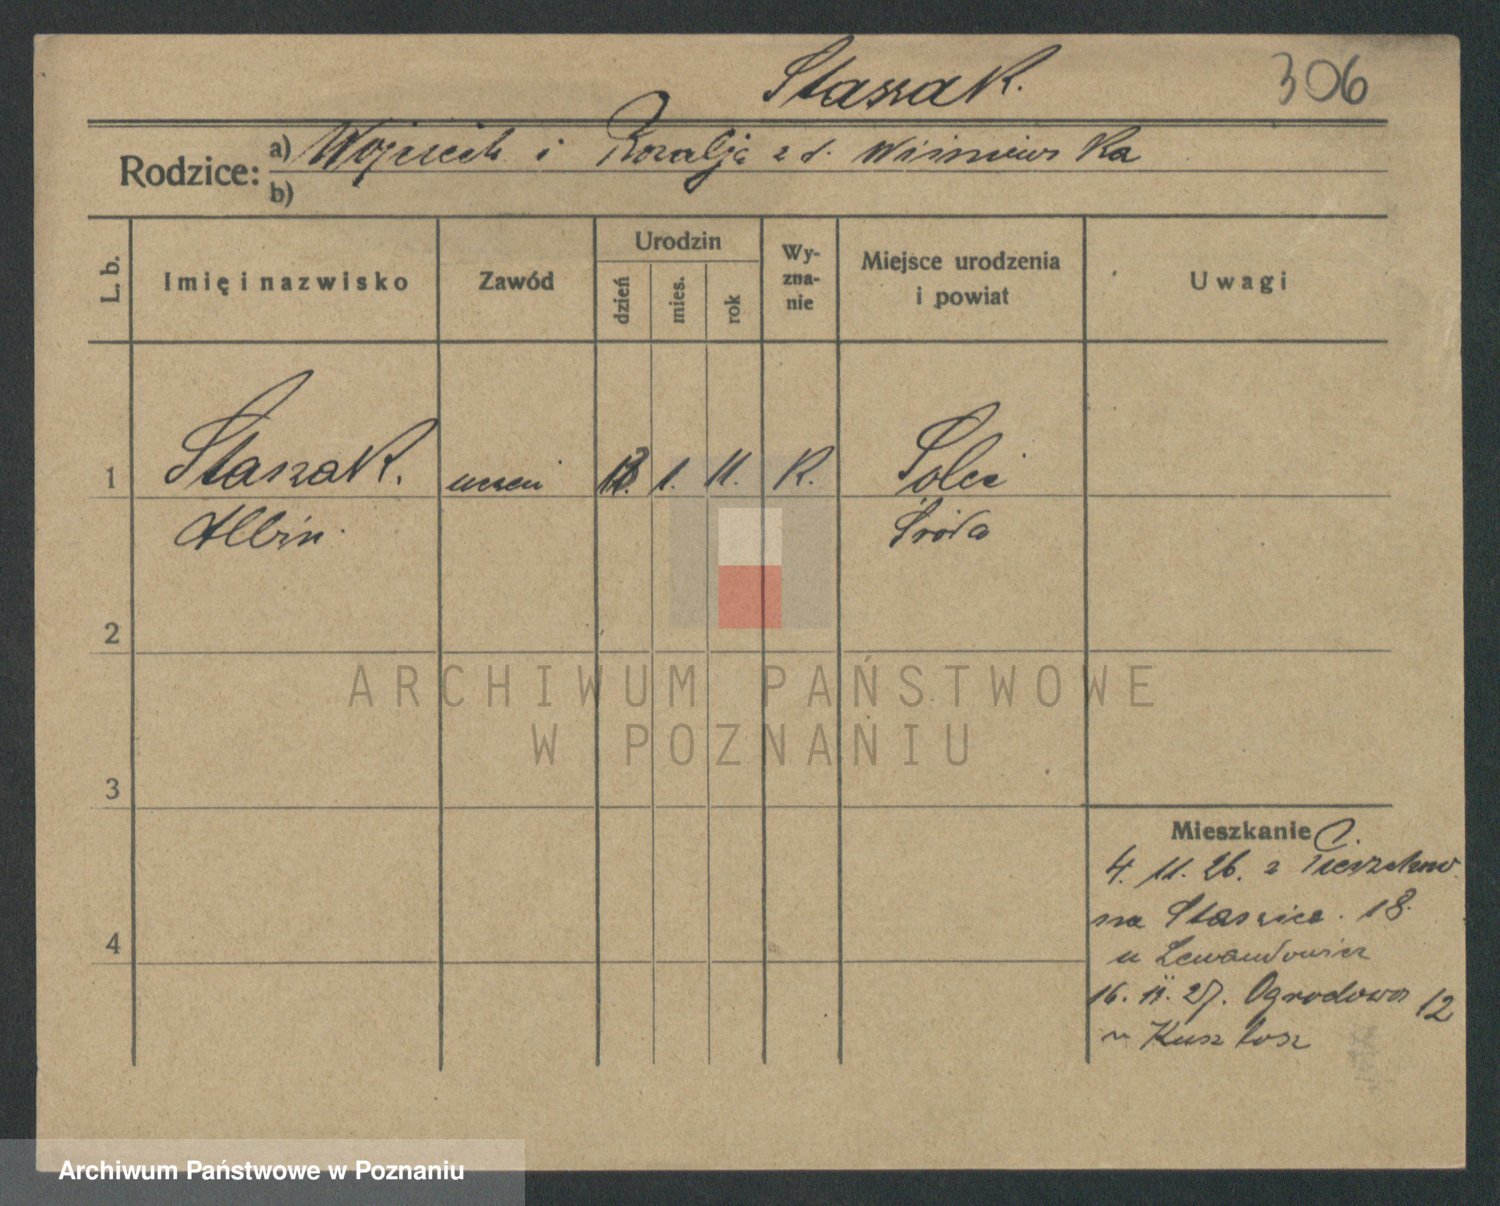 Staszak.
306
Rodzice:
a) Wojciech i Rozalja z d. Wiśniewska
b)
L. b.
Imię i nazwisko
Zawód
Urodzin
dzień
mies.
rok
Wy-
zna-
nie
Miejsce urodzenia
i powiat
Uwagi
1 Staszak. uczeń 1. 11. K. Solec
Albin. Środa
2
3
4
Mieszkanie
4. 11. 26. z
na Staszica. 18.
u Lewandowicz
16. II. 27. Ogrodowa 12
ARCHIWUM PAŃSTWOWE
W POZNANIU
Archiwum Państwowe w Poznaniu